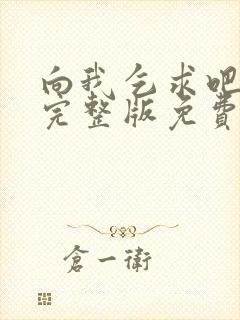 向我乞求吧
完整版免費
倉一衛